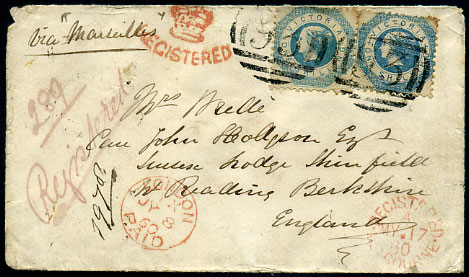 via "Marseilles"
REGISTERED
VICTORIA
VICTORIA
289
Registered
Mrs
Care John Hodgson Esqr
Lodge Shinfield
Nr Reading Berkshire
England
LONDON
60
PAID
REGISTERED
MELBOURNE